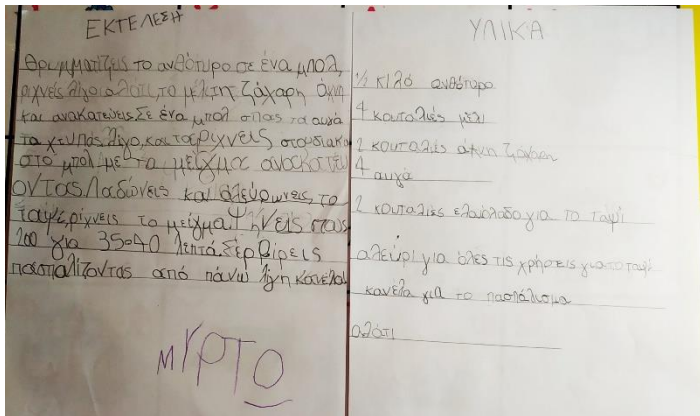 ΕΚΤΕΛΕΣΗ
Θρυμματίζεις το ανθότυρο σε ένα μπολ,
ρίχνεις λίγο αλάτι, το μέλι, τη ζάχαρη άχνη
και ανακατεύεις. Σε ένα μπολ σπας τα αυγά
τα χτυπάς λίγο, και τα ρίχνεις σταδιακά
στο μπολ με το μείγμα ανακατεύ
οντας. Λαδώνεις και αλευρώνεις το
ταψί, ρίχνεις το μείγμα. Ψήνεις στους
200 για 35-40 λεπτά. Σερβίρεις
πασπαλίζοντας από πάνω λίγη κανέλα
ΜΥΡΤΟ
ΥΛΙΚΑ
1/2 κιλό ανθότυρο
4 κουταλιές μέλι
2 κουταλιές άχνη ζάχαρη
4 αυγά
2 κουταλιές ελαιόλαδο για το ταψί
αλεύρι για όλες τις χρήσεις για το ταψί
κανέλα για το πασπάλισμα
αλάτι